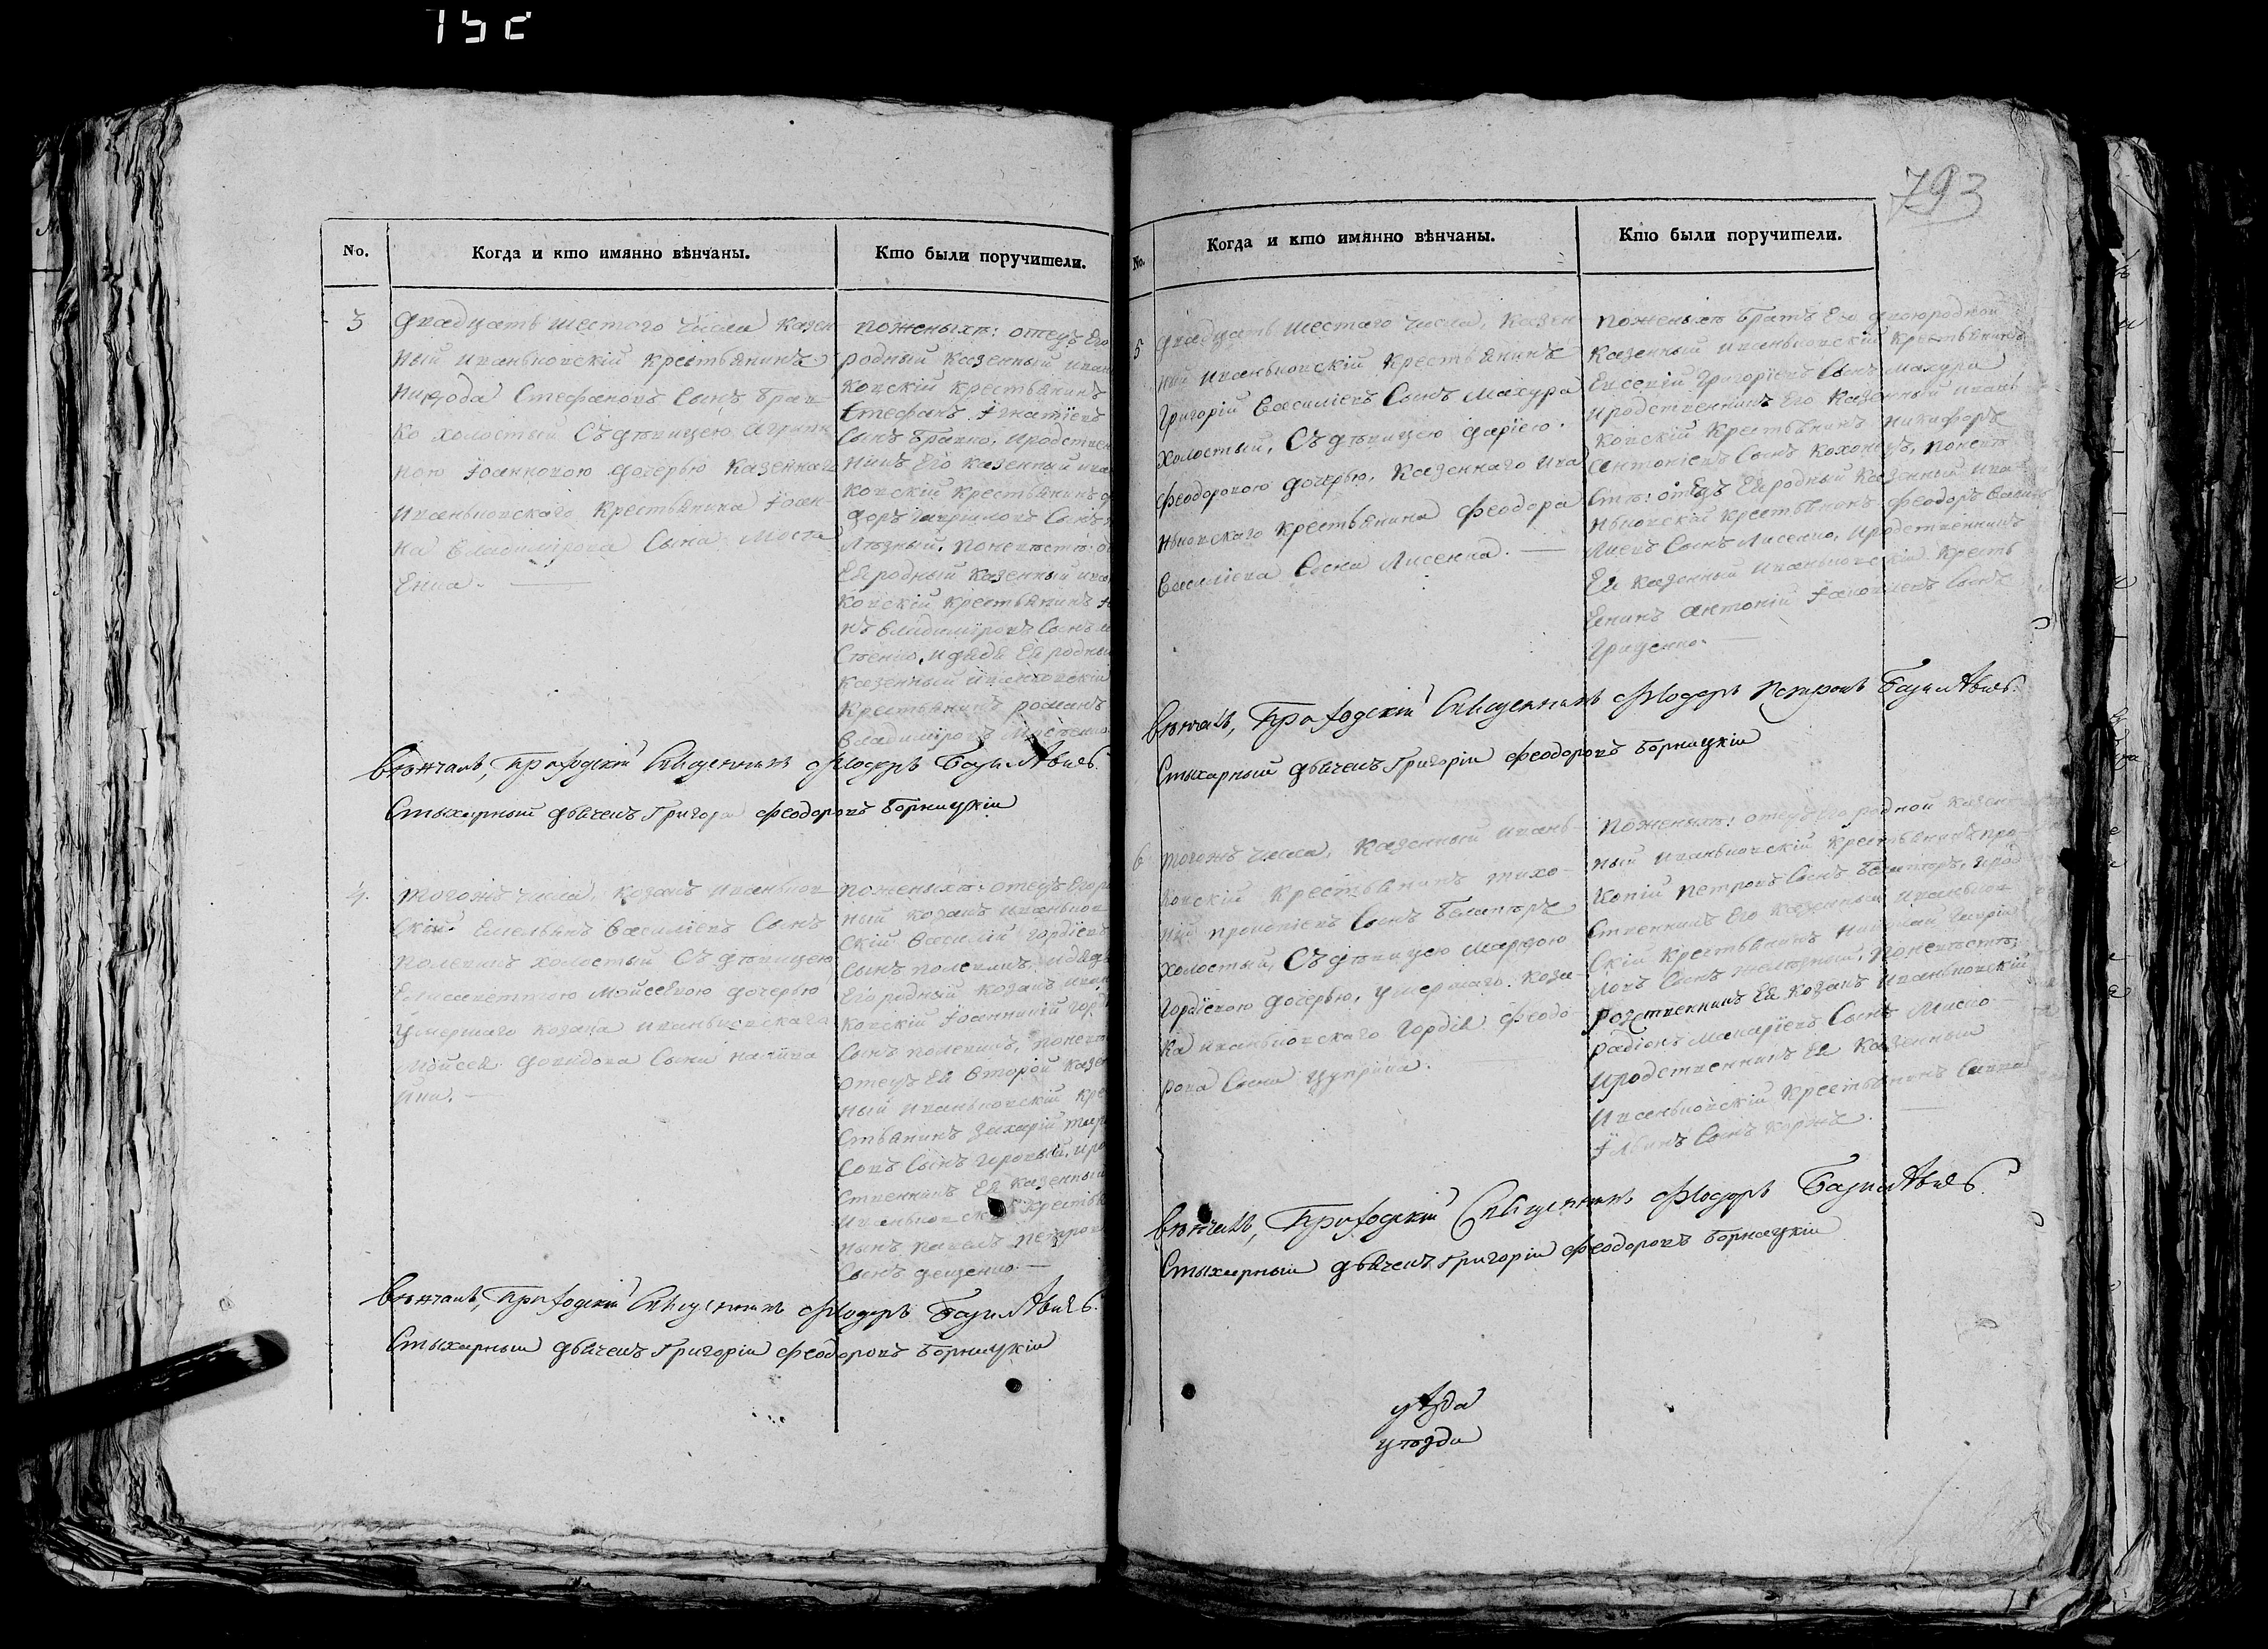 793
No.
Когда и кто имянно вѣнчаны.
Кто были поручители.
3
двадцать шестого числа казен-
ный иваньковскій крестьянинъ
Никода Стефановъ сынъ Брат-
ко холостый съ дѣвицею Агрипи
ною Іоанновою дочерью казеннаго
иваньковскаго крестьянина Іоан-
на Владимірова сына Моста
енка.
поженыхѣ: отецъ Его
родный казенный иван
ковскій крестьянинъ
Стефанъ Игнатіевъ
сынъ Братко, иродствен
никъ Его казенный ива
ковскій крестьянинъ
доръ Гавриловъ сынъ
лѣзный, поневѣстѣ: о
Ея родный казенный ива
ковскій крестьянинъ
нъ Владиміровъ сынъ
стенко, идядя Ея родный
казенный иваньковскій
крестьянинъ романъ
Владиміровъ
вѣнчалъ, Приходскій Священникъ Фіодоръ Базилѣвичъ.
Стыхарный дьячекъ Григорій Феодоровъ Борницкій
4.
тогожъ числа, козакъ иваньков-
скій Емельянъ Василіевъ сынъ
Полевикъ холостый съ дѣвицею
Елисаветтою Моисеевою дочерью
умершаго козака иваньковскаго
Мойсея Довидова сына
ина.
поженыхѣ: отецъ Его ро
ный козакъ иваньков
скій Василій Гордіевъ
сынъ Полевикъ, идядя
Его родный козакъ иван
ковскій Іоанникій Гор
сынъ Полевикъ, поневѣ
отецъ Ея второй казен
ный иваньковскій кре
стьянинъ Захарій Тара
совъ сынъ Яровый, иро
ственникъ Ея казенный
иваньковскій крестья
нинъ Павелъ Петров
сынъ Деценко.
вѣнчалъ, Приходскій Священникъ Фіодоръ Базилѣвичъ.
Стыхарный дьячекъ Григорій Феодоровъ Борницкій
No.
Когда и кто имянно вѣнчаны.
Кто были поручители.
5
двадцать шестаго числа, казен-
ный иваньковскій крестьянинъ
Григорій Василіевъ сынъ Махура
холостый, съ дѣвицею Даріею
Феодоровою дочерью, казеннаго ива
ньковскаго крестьянина Феодора
Василіева сына Лисенка.
поженыхѣ братъ Его двоюродной
казенный иваньковскій крестьянинъ
Евсевій Григоріевъ сынъ Махура
иродственникъ Его казенный ивань
ковскій крестьянинъ Никифоръ
Антоніевъ сынъ Кохонецъ, поневѣ
стѣ: отецъ Ея родный казенный ива
ньковскій крестьянинъ Феодоръ Васи
ліевъ сынъ Лисенко, иродственникъ
Ея казенный иваньковскій кресть
янинъ Антоній Іаковлевъ сынъ
Гриценко.
вѣнчалъ, Приходскій Священникъ Фіодоръ Петровъ Базилѣвичъ.
Стыхарный дьячекъ Григорій Феодоровъ Борницкій
6
тогожъ числа, казенный ивань-
ковскій крестьянинъ тихо-
ній Прокопіевъ сынъ
холостый, съ дѣвицею Марфою
Гордіевою дочерью, умершаго коза-
ка иваньковскаго Гордія Феодо-
рова сына Цуприка.
поженыхѣ: отецъ Его родной казен
ный иваньковскій крестьянинъ Про-
копій Петровъ сынъ ирод
ственникъ Его казенный иваньков
скій крестьянинъ Николай Гавріи
ловъ сынъ Желѣзный, поневѣстѣ:
родственникъ Ея козакъ иваньковскій
Радіонъ Макаріевъ сынъ
иродственникъ Ея казенный
иваньковскій крестьянинъ Савва
Ільинъ сынъ Коржъ.
вѣнчалъ, Приходскій Священникъ Фіодоръ Базилѣвичъ.
Стыхарный дьячекъ Григорій Феодоровъ Борницкій
уѣзда
уѣзда